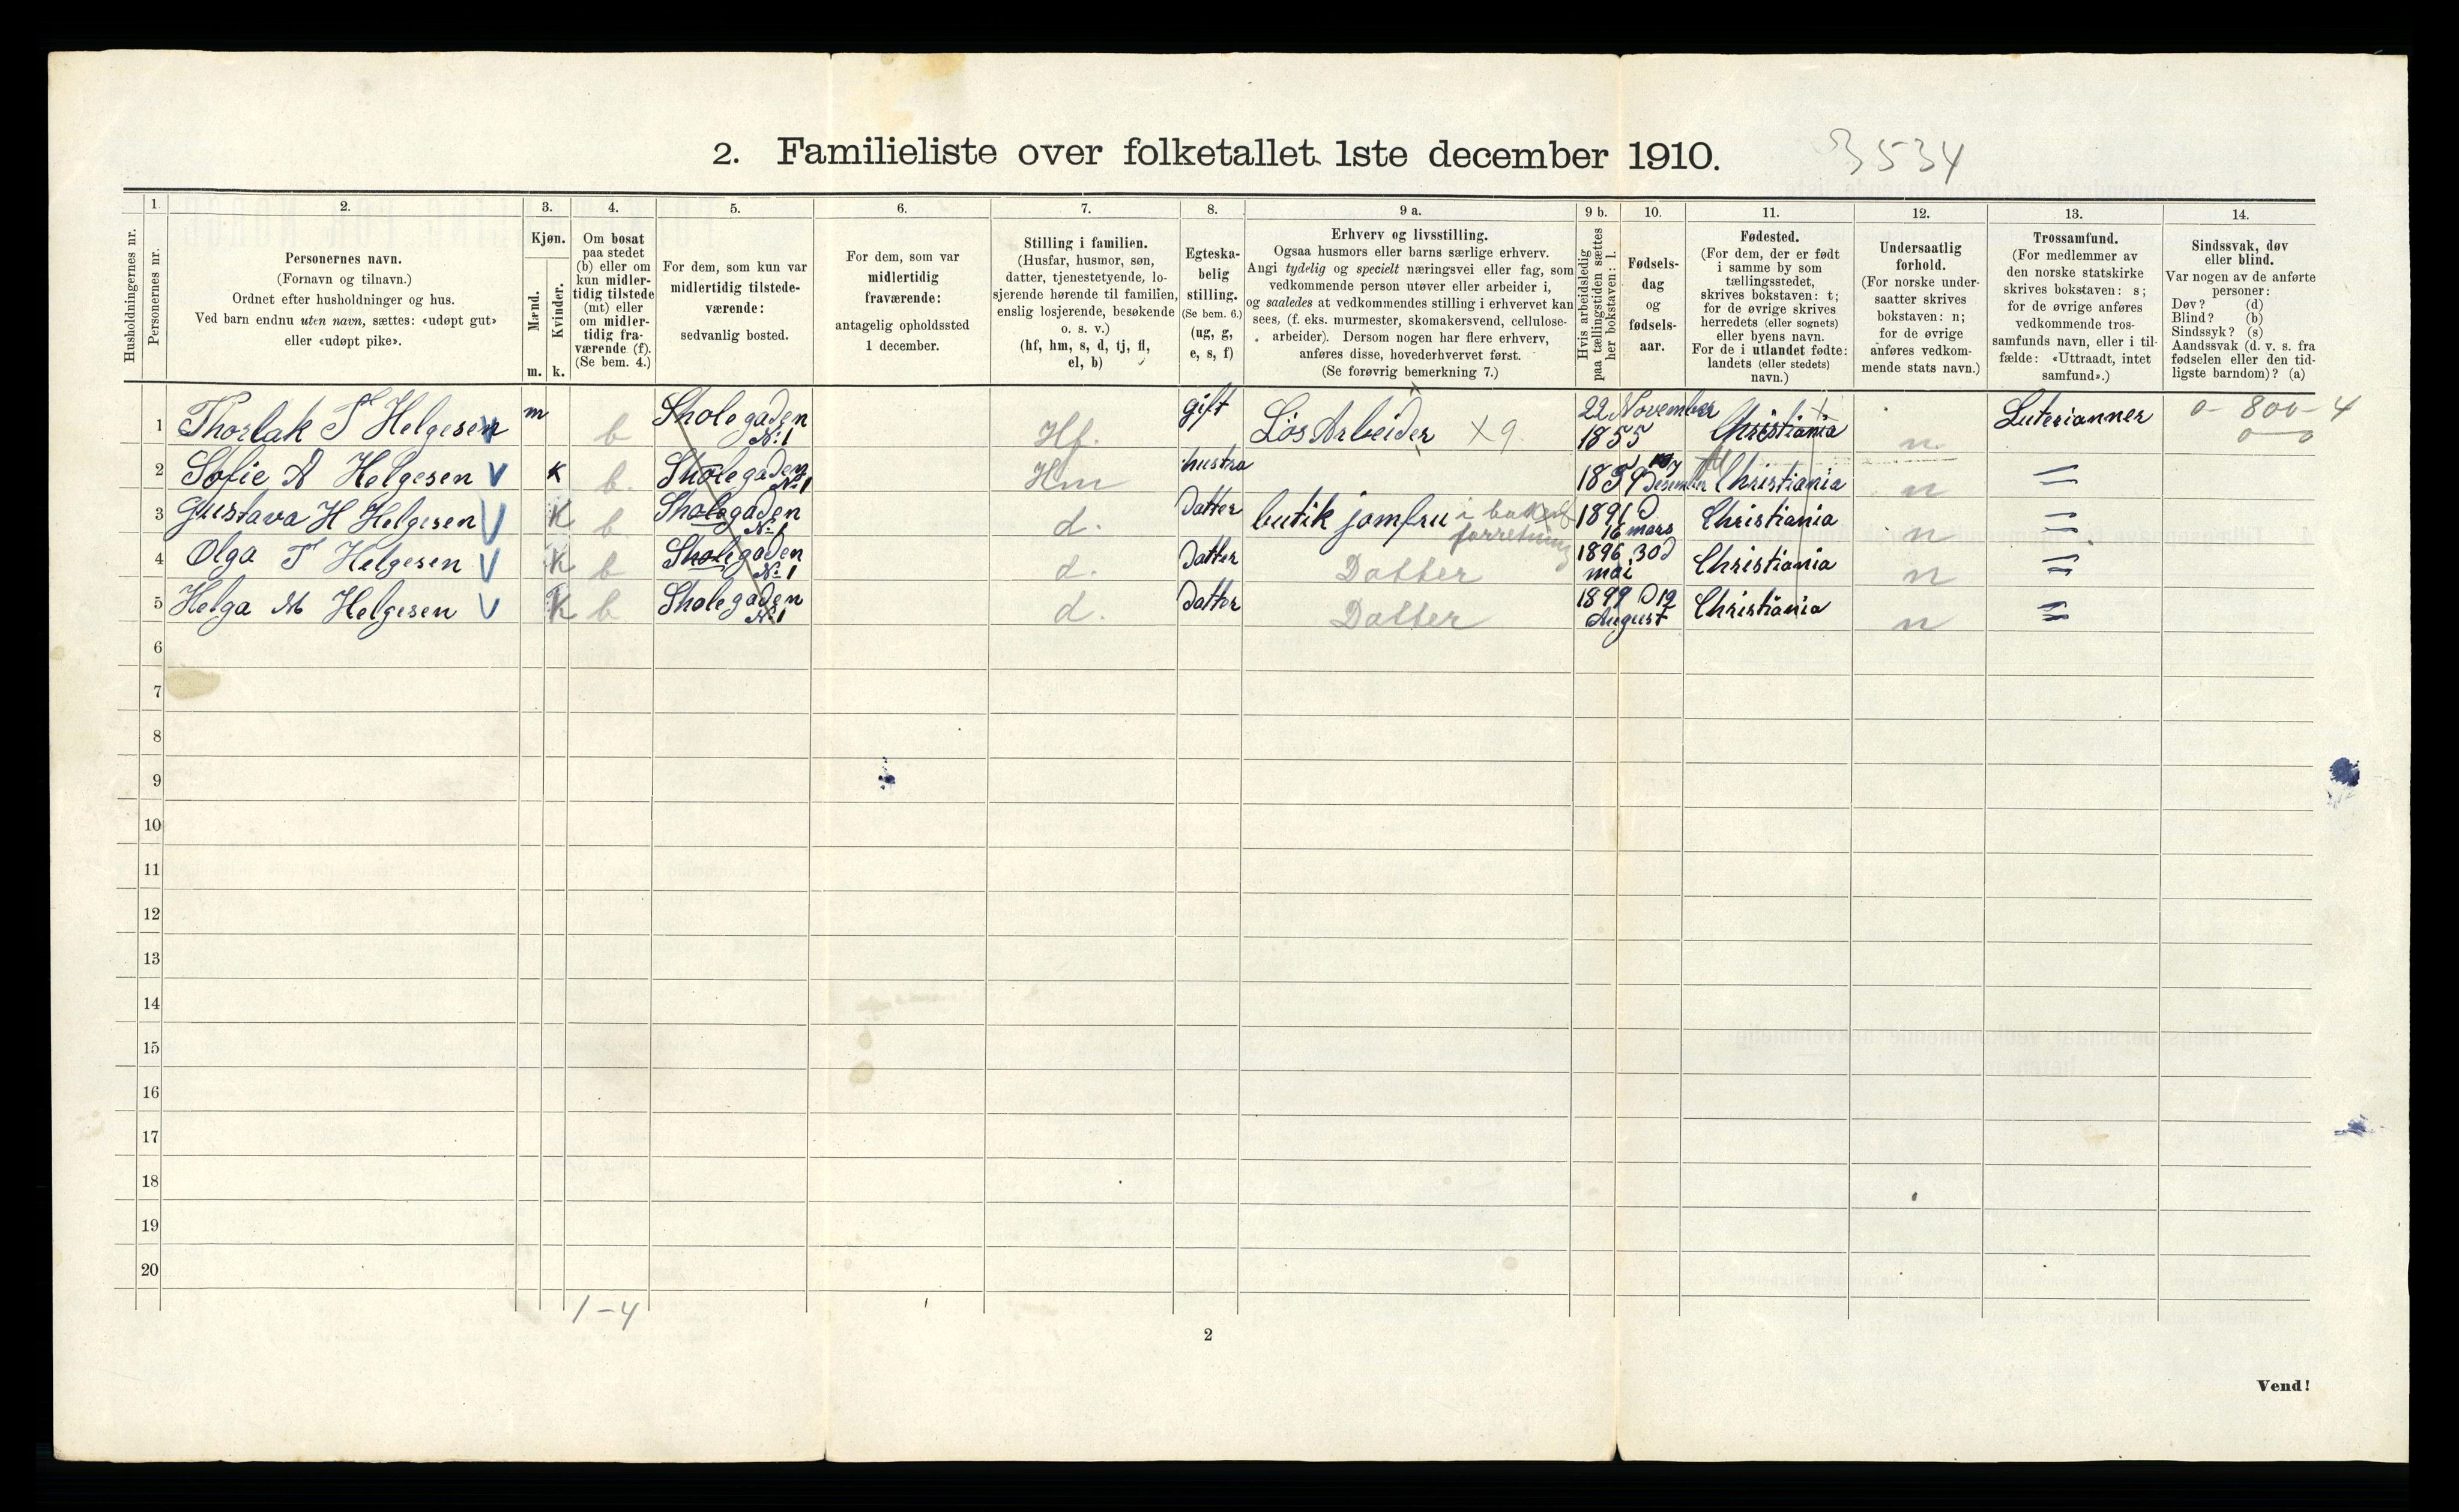 2. Familieliste over folketallet 1ste december 1910.
3534
Husholdningernes nr.
1.
Personernes nr.
2.
Personernes navn.
(Fornavn og tilnavn.)
Ordnet efter husholdninger og hus.
Ved barn endnu uten navn, sættes: «udøpt gut»
eller «udøpt pike».
3.
Kjøn.
Mænd.
Kvinder.
m. k.
4.
Om bosat
paa stedet
(b) eller om
kun midler-
tidig tilstede
(mt) eller
om midler-
tidig fra-
værende (f).
(Se bem. 4.)
5.
For dem, som kun var
midlertidig tilstede-
værende:
sedvanlig bosted.
6.
For dem, som var
midlertidig
fraværende:
antagelig opholdssted
1 december.
7.
Stilling i familien.
(Husfar, husmor, søn,
datter, tjenestetyende, lo-
sjerende hørende til familien,
enslig losjerende, besøkende
o. s. v.)
(hf, hm, s, d, tj, fl,
el, b)
8.
Egteska-
belig
stilling.
(Se bem. 6.)
(ug, g,
e, s, f)
9 a.
Erhverv og livsstilling.
Ogsaa husmors eller barns særlige erhverv.
Angi tydelig og specielt næringsvei eller fag, som
vedkommende person utøver eller arbeider i,
og saaledes at vedkommendes stilling i erhvervet kan
sees, (f. eks. murmester, skomakersvend, cellulose-
arbeider). Dersom nogen har flere erhverv,
anføres disse, hovederhvervet først.
(Se forøvrig bemerkning 7.)
9 b.
Hvis arbeidsledig
paa tællingstiden sættes
her bokstaven: l.
10.
Fødsels-
dag
og
fødsels-
aar.
11.
Fødested.
(For dem, der er født
i samme by som
tællingsstedet,
skrives bokstaven: t;
for de øvrige skrives
herredets (eller sognets)
eller byens navn.
For de i utlandet fødte:
landets (eller stedets)
navn.)
12.
Undersaatlig
forhold.
(For norske under-
saatter skrives
bokstaven: n;
for de øvrige
anføres vedkom-
mende stats navn.)
13.
Trossamfund.
(For medlemmer av
den norske statskirke
skrives bokstaven: s;
for de øvrige anføres
vedkommende tros-
samfunds navn, eller i til-
fælde: «Uttraadt, intet
samfund».)
14.
Sindssvak, døv
eller blind.
Var nogen av de anførte
personer:
Døv? (d)
Blind? (b)
Sindssyk? (s)
Aandssvak (d. v. s. fra
fødselen eller den tid-
ligste barndom)? (a)
1 Thorlak T Helgesen m b Skolegaden N: 1 Hf. gift Løs Arbeider X 9 22 November 1855 Christiania n. Luterianner 0- 800-4
0—0
2 Sofie A Helgesen K b. Skolegaden N: 1 Hm hustru Desember Christiania n =
3 Gustava H Helgesen K b Skolegaden N: 1 d. Datter butik jomfru i forretning 1891 D 16 mars Christiania n =
4 Olga T Helgesen K b Skolegaden N: 1 d. Datter Datter 1896 30 d mai Christiania n =
5 Helga M Helgesen K b Skolegaden N: 1 d. Datter Datter 1899 D 12 August Christiania n =
6
7
8
9
10
11
12
13
14
15
16
17
18
19
20
1-4
2
Vend!